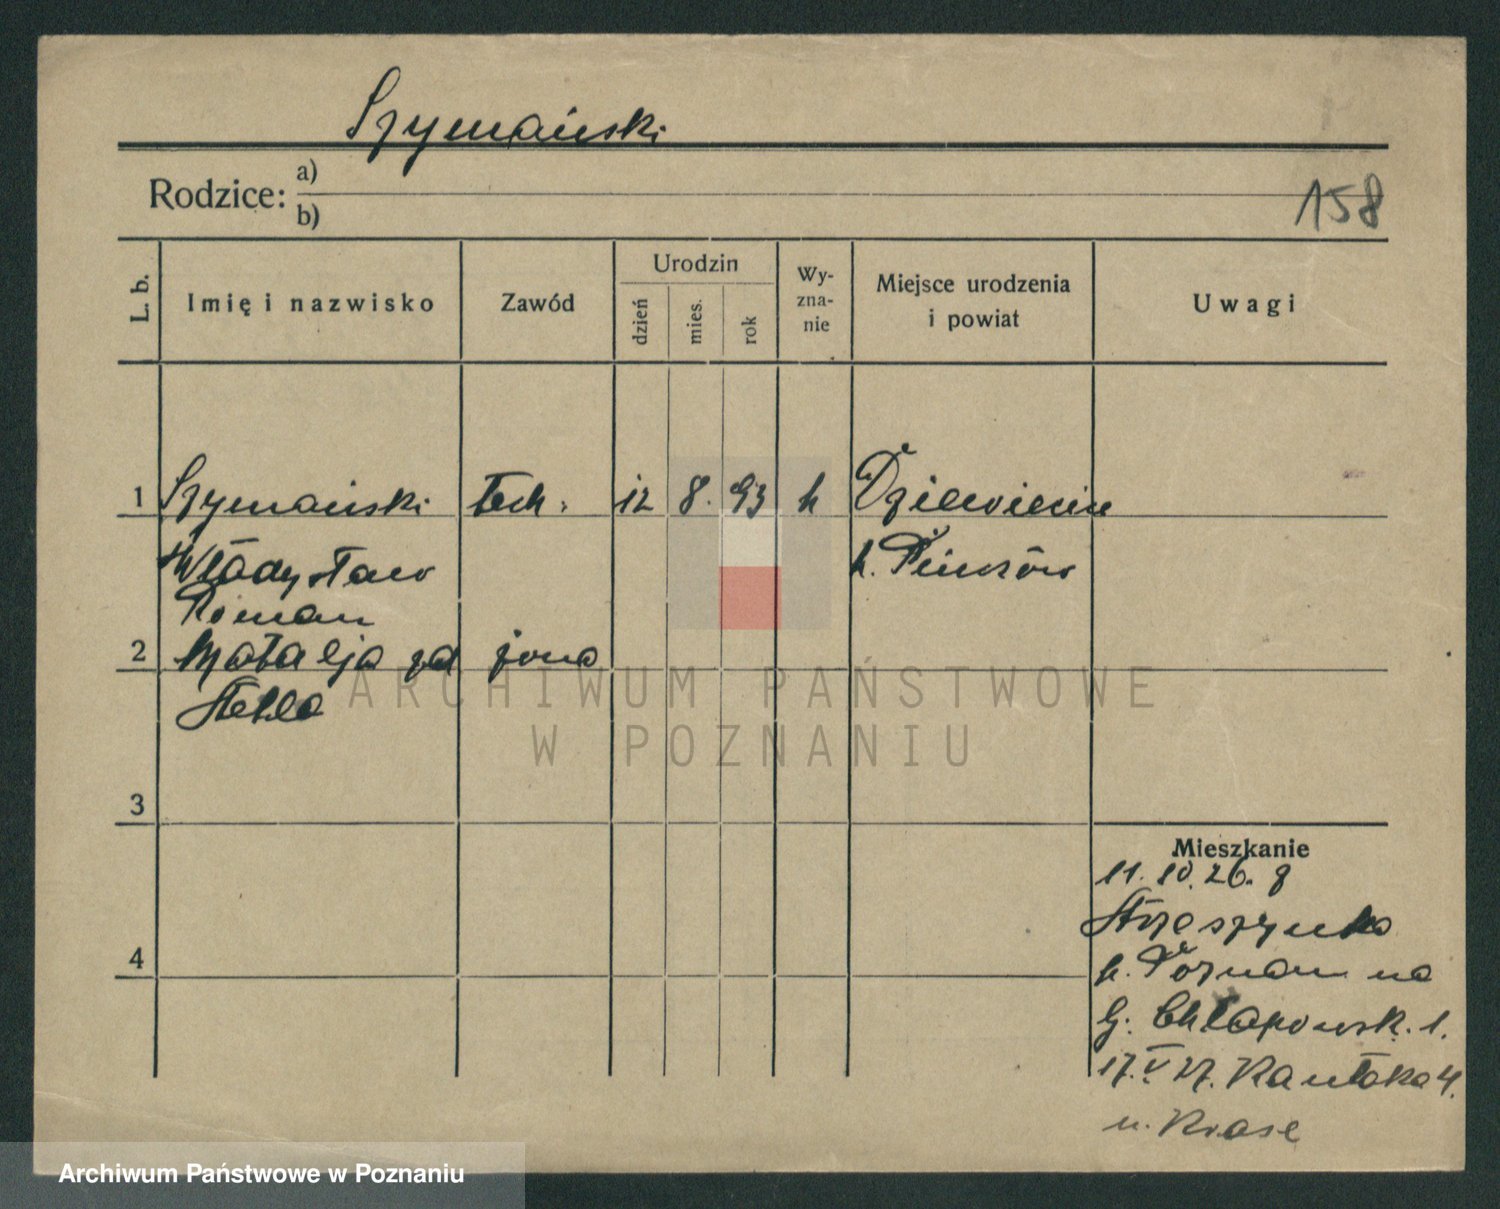 Szymański
Rodzice: a)
b)
158
L. b. Imię i nazwisko Zawód Urodzin dzień mies. rok Wy-zna-nie Miejsce urodzenia i powiat Uwagi
1 Szymański tech. 12 8. 93 k
Władysław k. Pińczów
Roman
2 Natalja zd żona
ARCHIWUM PAŃSTWOWE
W POZNANIU
3
Mieszkanie
11. 10. 26. z
Strzeszynka
4 k. Poznan na
G. Chłapowsk. 1.
17. V 27. Kantaka 4.
u. Krase
Archiwum Państwowe w Poznaniu